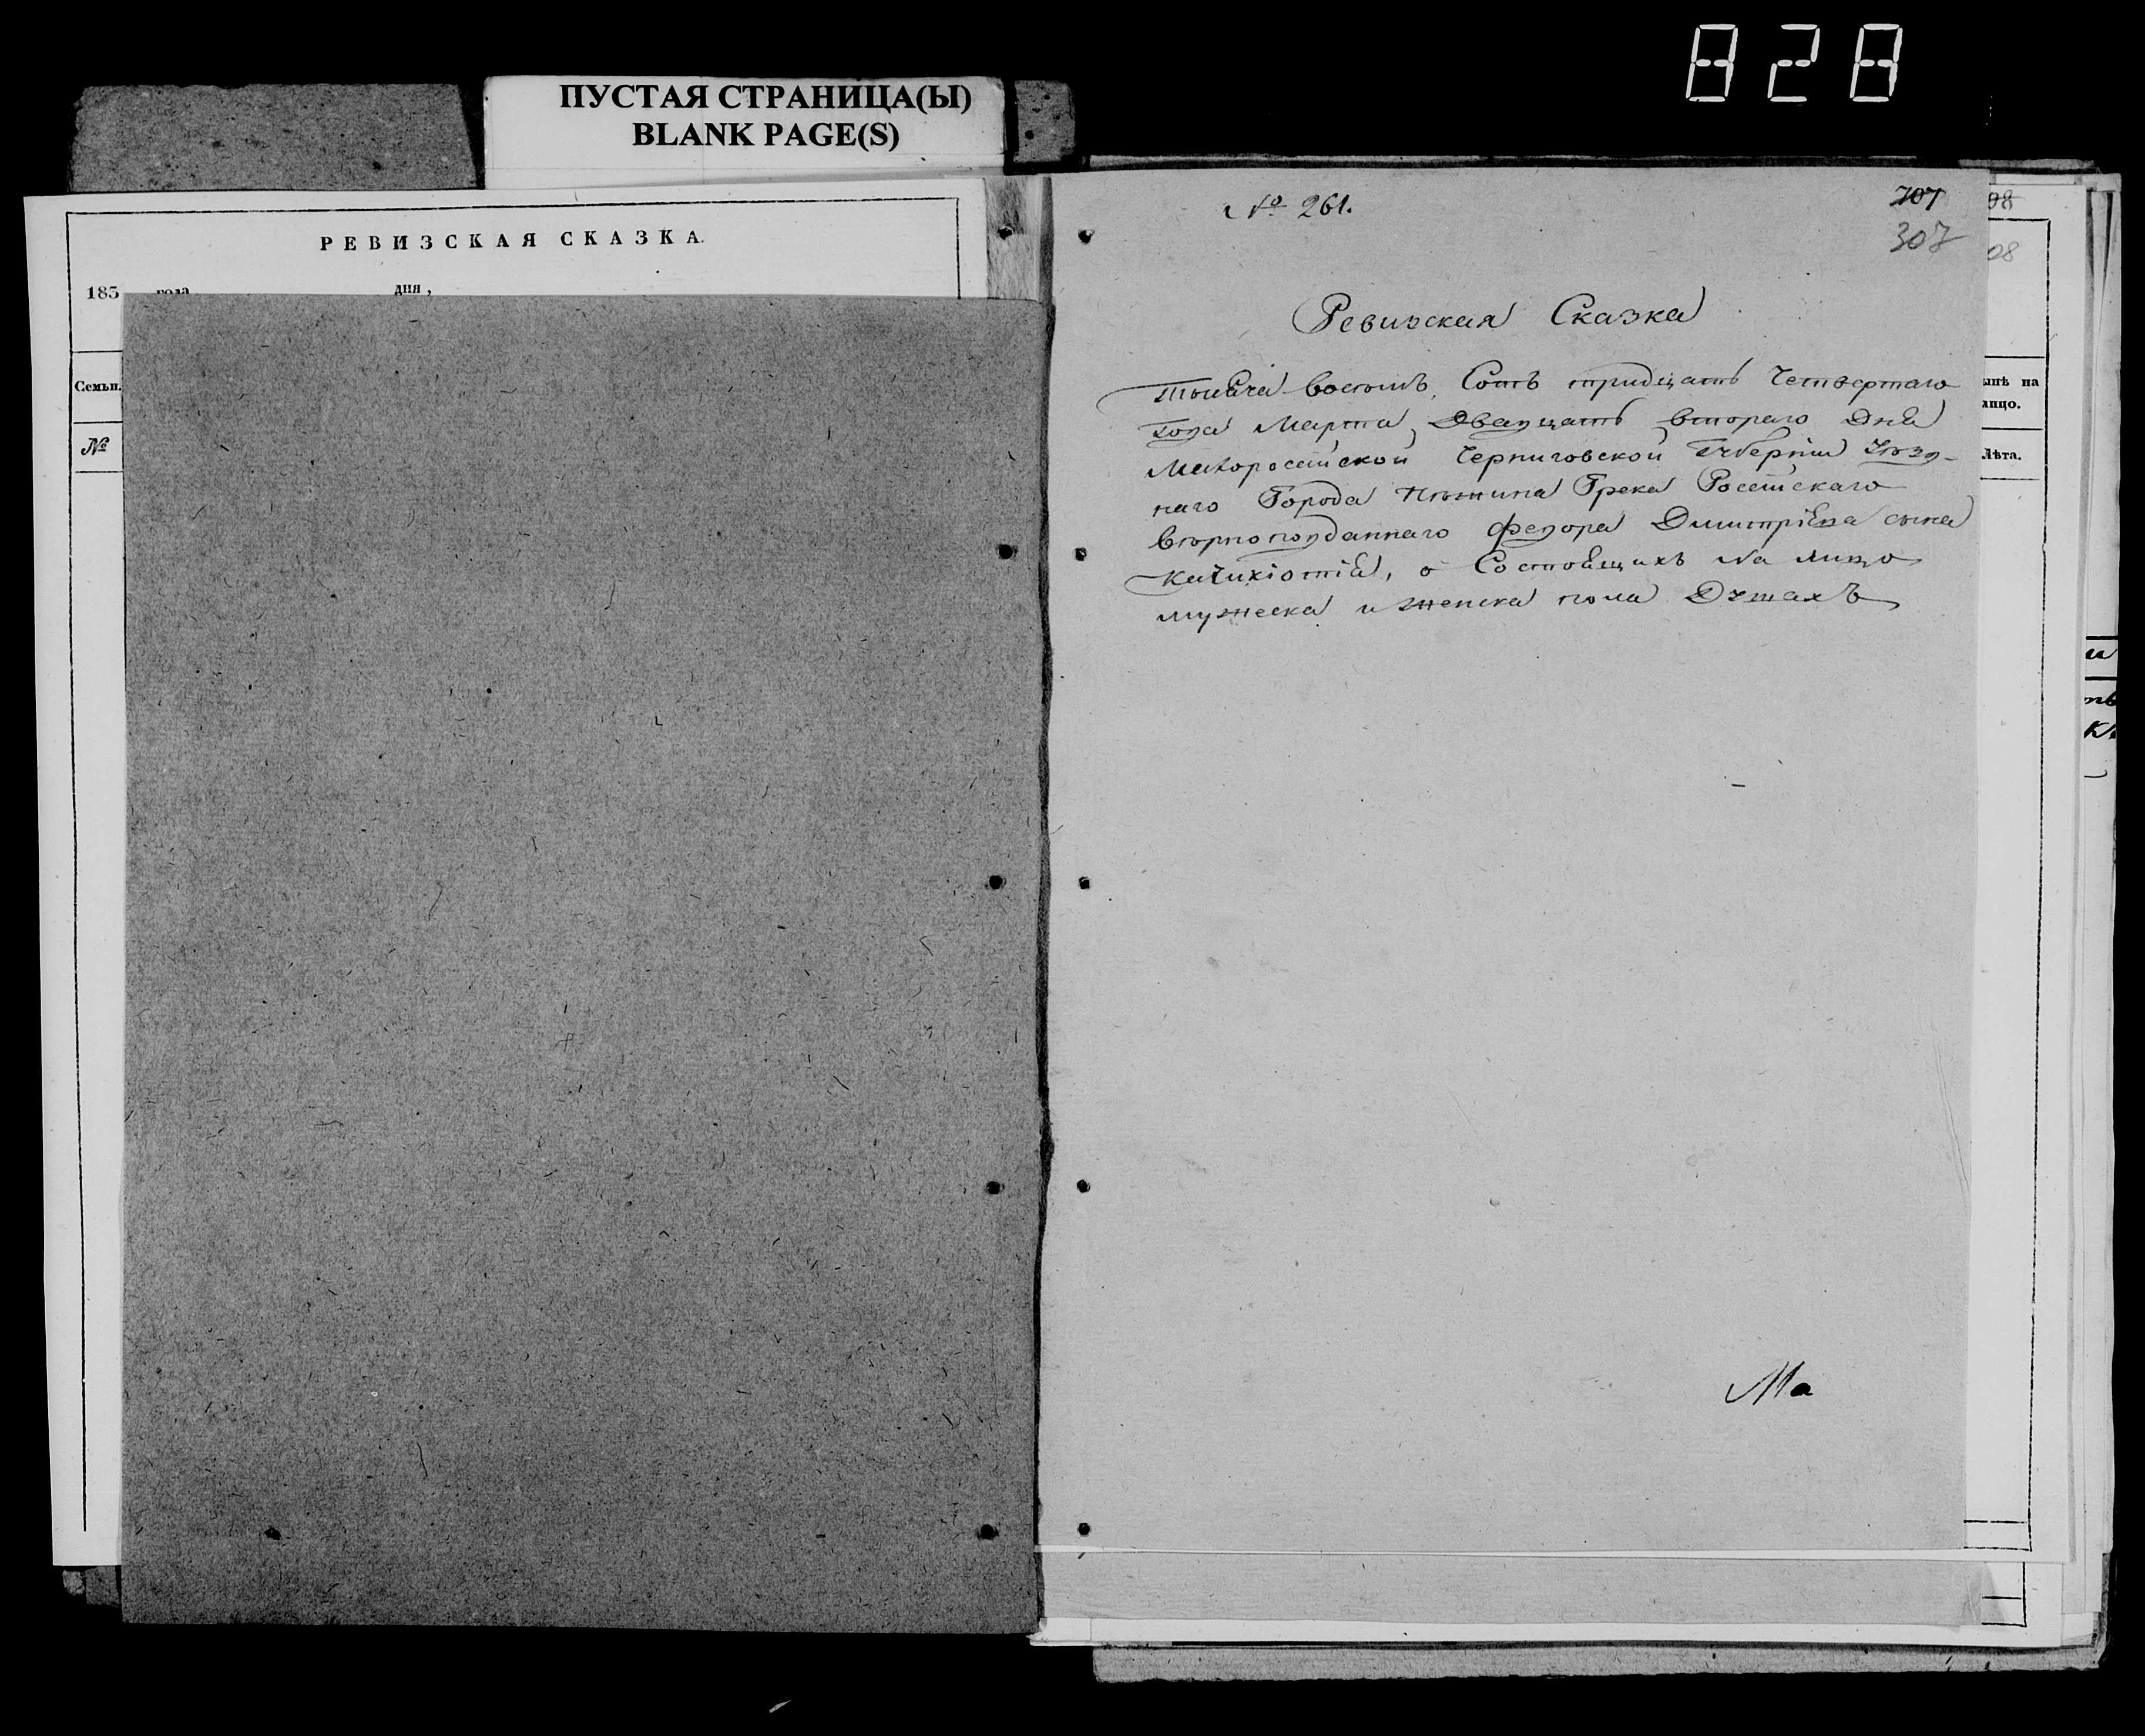 828
ПУСТАЯ СТРАНИЦА(Ы)
BLANK PAGE(S)
РЕВИЗСКАЯ СКАЗКА.
183 года дня,
Семьи.
№
№ 261.
707
307
Ревизская Сказка
тысяча восемь Сотъ тридцать Четвертаго
года Марта Двадцать втораго Дня
Малоросейской Черниговской Губернии Уезд-
наго Города Нѣжина Грека Росейскаго
вѣрноподданнаго Федора Димитріева сына
о Состоящихъ на лицо
мужеска и женска пола Душахъ
Ма
98
08
на
лицо.
Лѣта.